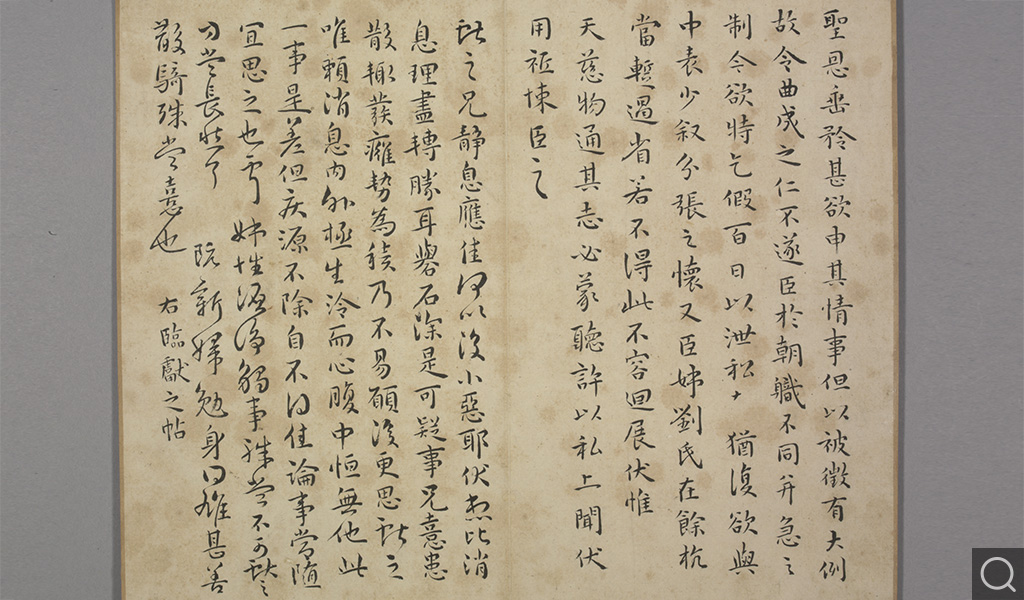 聖恩垂矜甚欲申其情事但以被徵有大例
故令曲成之仁不遂臣於朝職不同并急之
制令欲特乞假百日以泄私
猶復欲與
中表少叙分張之懷又臣姊劉氏在餘杭
當蹔過省若不得此不容迴展伏惟
天慈物通其志必蒙聽許以私上聞伏
用祗悚臣之
獻之兄靜息應佳何以復小惡耶伏想比消
息理盡轉勝耳礜石深是可疑事兄憙患
散輙發癰勢為積乃不易願復更思獻之
唯賴消息內外極生冷而心腹中恒無他此
一事是差但疾源不除自不得佳論事當隨
宜思之也
姊性
觸事殊當不可獻之
當長
阮新婦勉身得雄甚善
散騎殊當憙也
右臨獻之帖